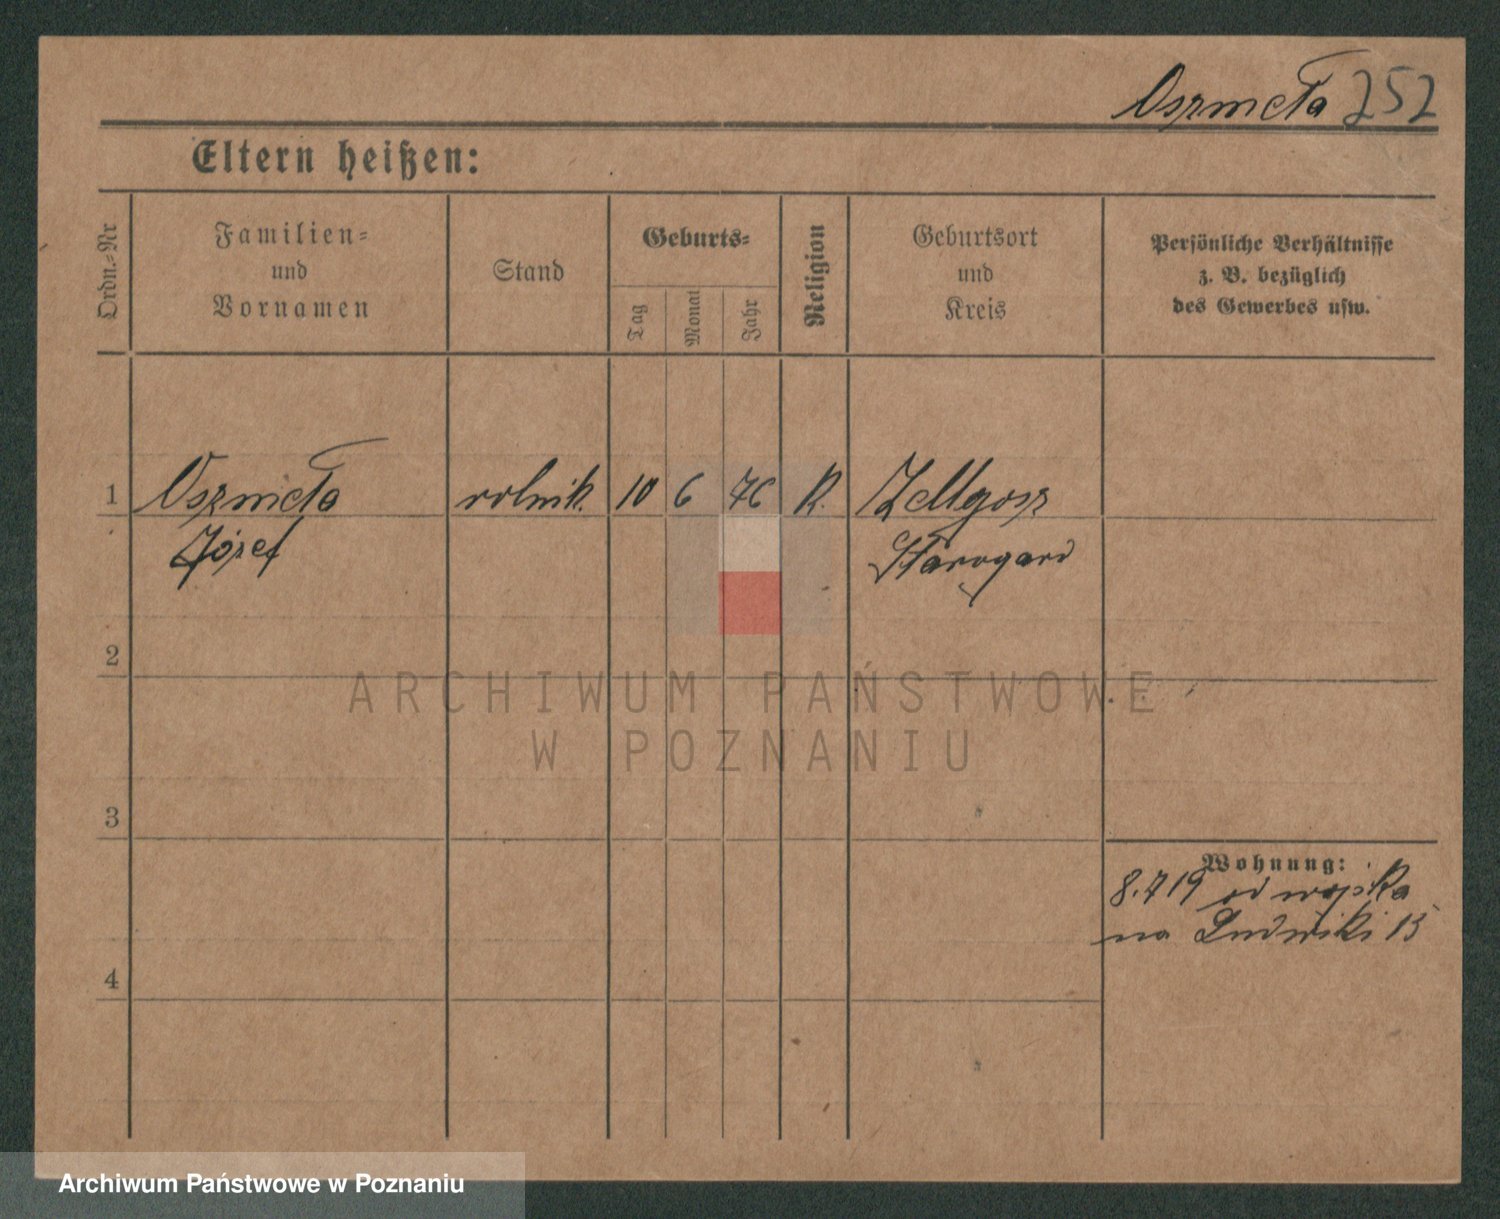 Oszmeta 252
Eltern heißen:
Ordn.-Nr
Familien-
und
Vornamen
Stand
Geburts-
Tag
Monat
Jahr
Religion
Geburtsort
und
Kreis
Persönliche Verhältnisse
z. B. bezüglich
des Gewerbes usw.
1 rolnik. 10 6 76 K.
Józef
Starogard
2
3
4
Wohnung:
8.7 19 od wojska
na Ludwiki 15
ARCHIWUM PAŃSTWOWE
W POZNANIU
Archiwum Państwowe w Poznaniu